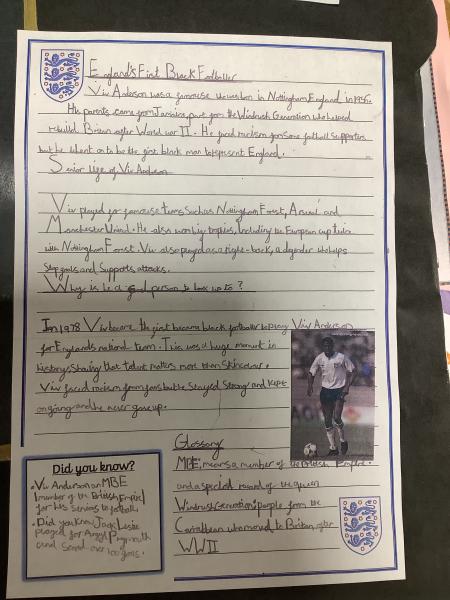 England's First Black Footballer
Viv Anderson was a famouse he was born in Nottingham England in 1956.
His parents came from Jamaica, part from the Windrush Generation who helped
rebuild Britain after World War II. He faced racism from some football supporters
but he went on to be the first black man to represent England.
Senior life of Viv Anderson
Viv played for famouse teams such as Nottingham Forest, Arsenal and
Manchester United. He also won big trophies, including the European cup twice
with Nottingham Forest. Viv also played as a right-back, a defender who helps
stop goals and supports attacks.
Why is he a good person to look up to?
In 1978 Viv became the first became black footballer to play
for England's national team. This was a huge moment in
history showing that talent matters more than skin colour.
Viv faced racism from fans but he stayed strong and kept
on going and he never gave up.
Viv Anderson
Glossary
MBE: means a member of the British Empire.
and a special reward of the queen
Windrush Generation: people from the
Carribean who moved to Britain, after
WWII
Did you know?
Viv Anderson an MBE
(member of the British Empire)
for his services to football.
Did you know Jack Leslie
played for Argyl Plymouth
and scored over 100 goals.